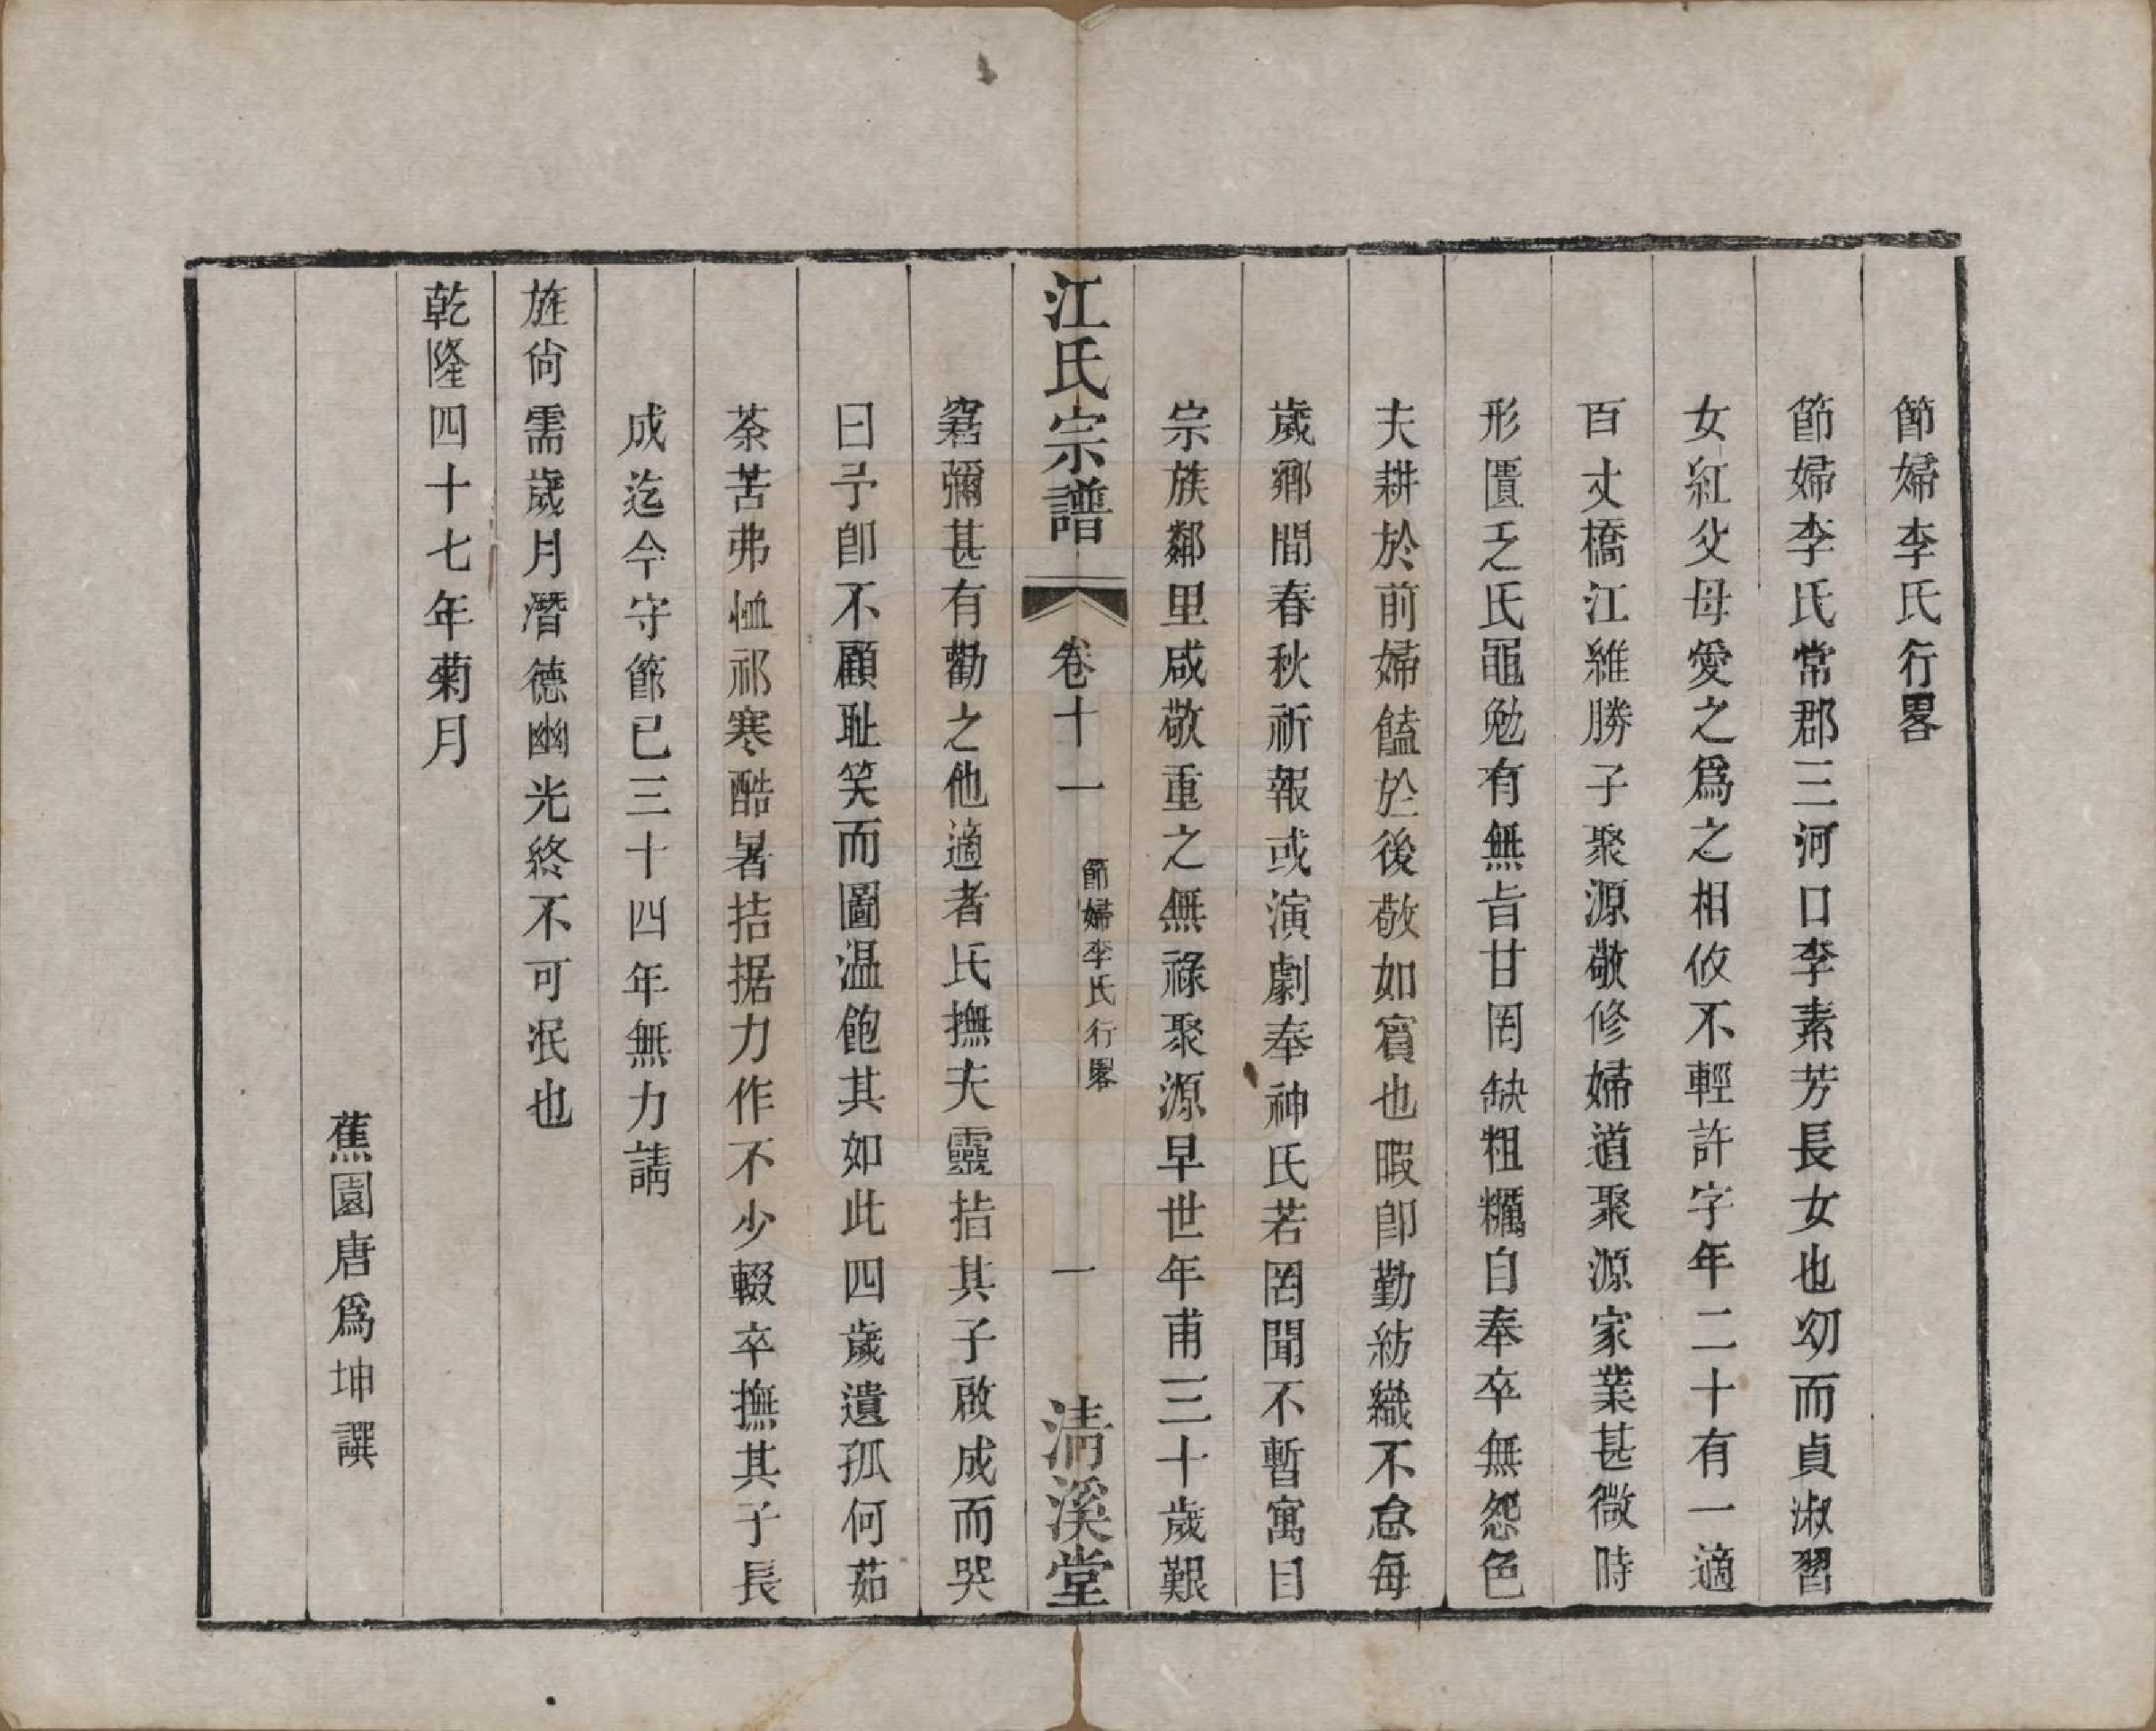 節婦李氏行畧
節婦李氏常郡三河口李素芳長女也幼而貞淑習
女紅父母愛之爲之相攸不輕許字年二十有一適
百丈橋江維勝子聚源敬修婦道聚源家業甚微時
形匱乏氏黽勉有無旨甘罔缺粗糲自奉卒無怨色
夫耕於前婦饁於後敬如賓也暇卽勤紡織不怠每
歲鄉間春秋祈報或演劇奉神氏若罔聞不暫寓目
宗族鄰里咸敬重之無祿聚源早世年甫三十歲艱
江氏宗譜 卷十一 節婦李氏行畧 一 清溪堂
窘彌甚有勸之他適者氏撫夫靈指其子啟成而哭
曰予卽不顧耻笑而圖温飽其如此四歲遺孤何茹
荼苦弗恤祁寒酷暑拮据力作不少輟卒撫其子長
成迄今守節已三十四年無力請
旌尙需歲月潛德幽光終不可泯也
乾隆四十七年菊月
蕉園唐爲坤譔